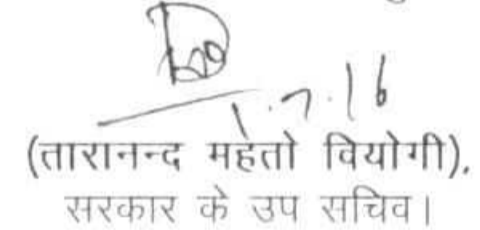 1.7.16
(तारानन्द महेतो वियोगी),
सरकार के उप सचिव।